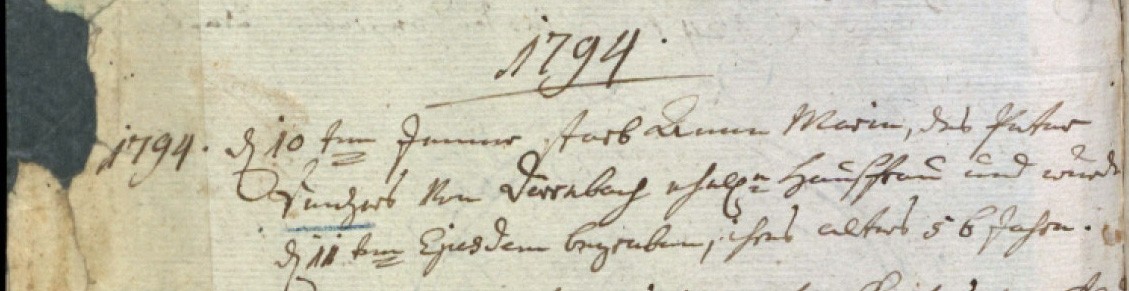 1794.
1794. d 10 ten Jenner starb Anna Maria, des Peter
von Dürrnbach ehel. Haußfrau und wurde
d 11 ten Ejusdem begraben, ihres alters 56 Jahr.